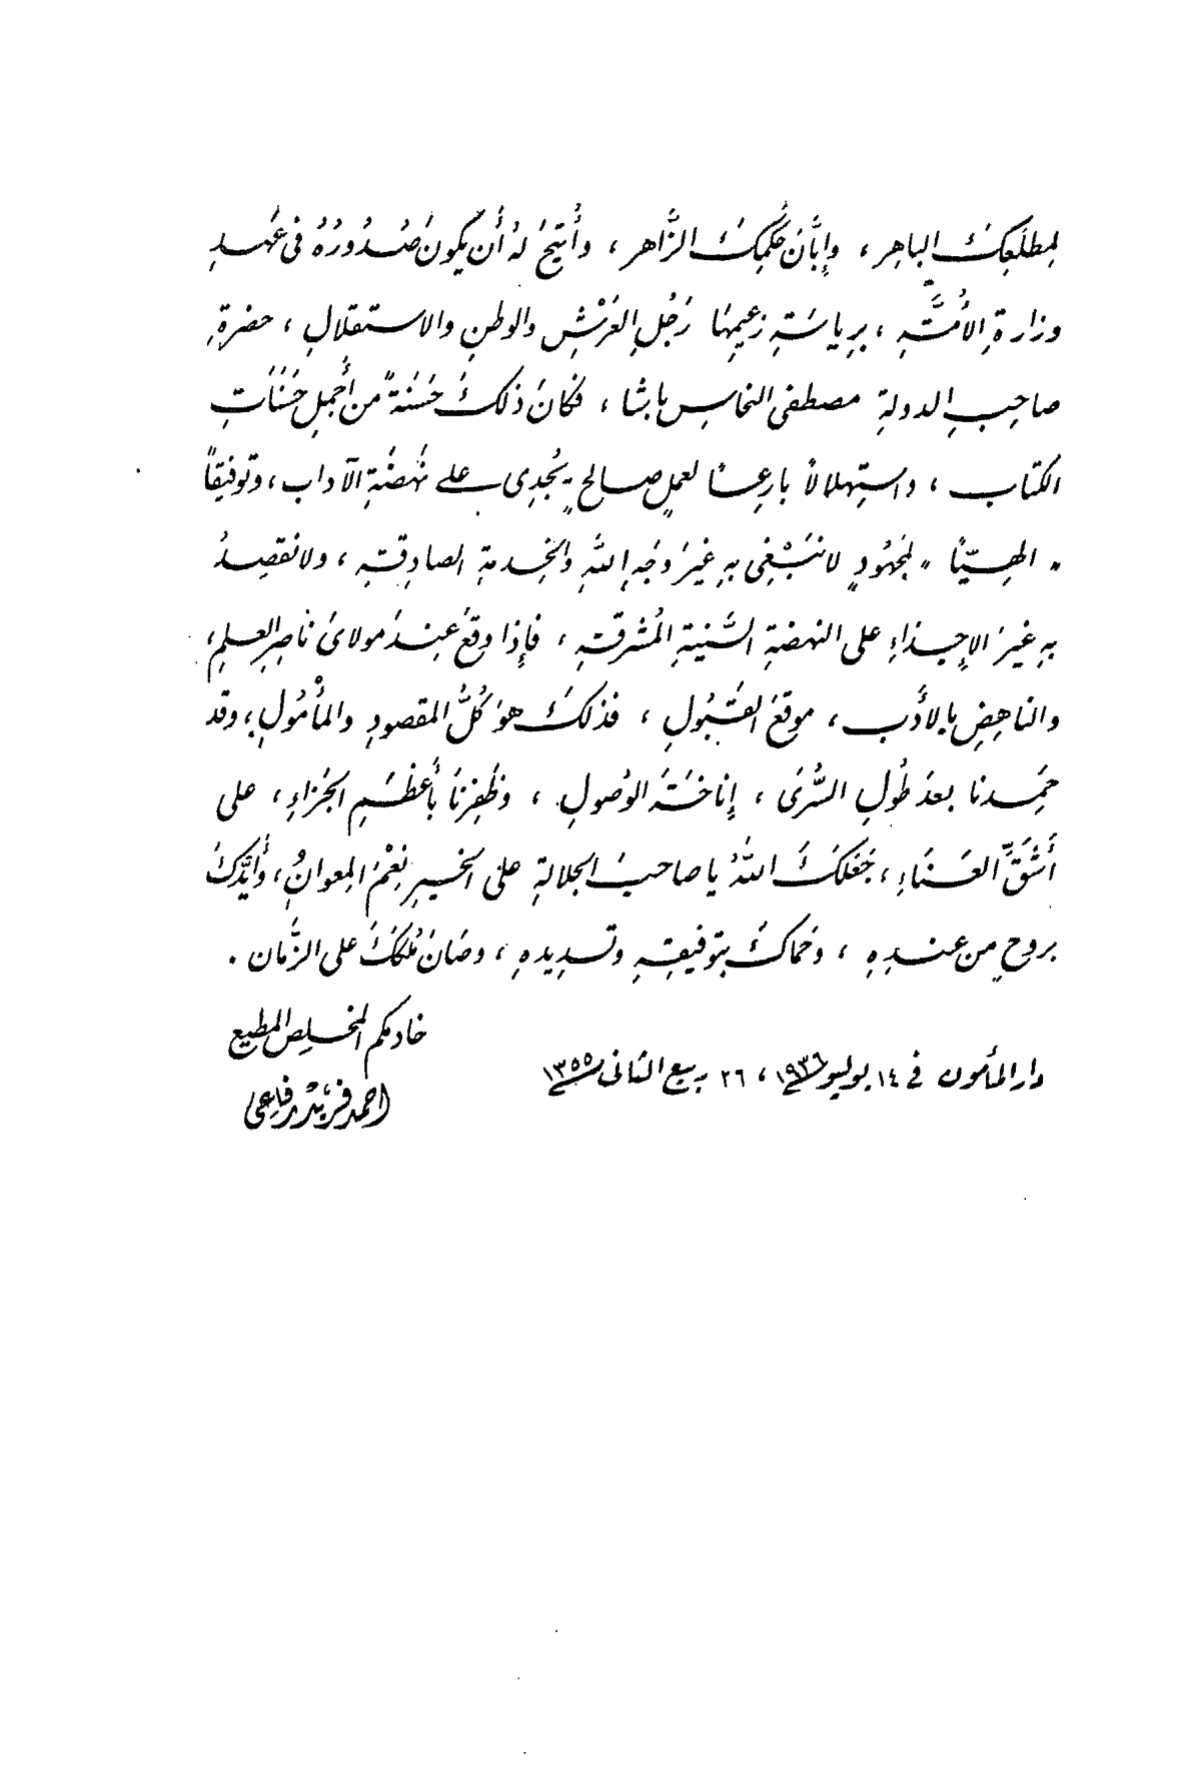 لمطلعِكَ الباهِر ، وإبَّانَ حُكمِكَ الزَّاهر ، وأُتيحَ لهُ أن يكونَ صُدُورُهُ فى عَهدِ
وزارةِ الأُمَّةِ ، برياسَةِ زعيمِهَا رَجُلِ العَرْشِ والوطنِ والاستقلالِ ، حضرةِ
صاحِبِ الدولةِ مصطفى النحاس باشا ، فكانَ ذلكَ حَسَنةً من أَجملِ حَسَنَاتِ
الكتاب ، واستِهلالاً بارِعًا لعملٍ صالحٍ يُجدِى على نهضَةِ الآداب ، وتوفيقاً
" إلهيًّا " لمجهُودٍ لا نَبْتَغِى بهِ غيرَ وَجْهِ اللهِ والخِدمةِ الصادِقةِ ، ولا نقصِدُ
بهِ غيرَ الإجداءِ على النهضةِ السَّنيَةِ المُشرقةِ ، فإِذا وقعَ عِندَ مولاىَ ناصِرِ العلمِ ،
والناهِضِ بالأَدَبِ ، موقعَ القَبُولِ ، فذلكَ هوَ كُلُّ المقصودِ والمأْمُولِ ، وقد
حَمِدنا بعدَ طُولِ السُّرَى ، إناخَةَ الوُصولِ ، وظَفِرنَا بأَعظَمِ الجَزاءِ ، على
أَشَقِّ العَنَاءِ ، جَعَلكَ اللهُ يا صاحبَ الجلالةِ على الخيرِ نِعْمَ المِعوانُ ، وأَيَّدَكَ
بروحٍ من عندِهِ ، وحَماكَ بتوفيقِهِ وتسديدِهِ ، وصَانَ مُلكَكَ على الزَّمان .
خادمكم المخلص المطيع
دار المأمون فى ١٤ يوليو ١٩٣٦ ، ٢٦ ربيع الثانى ١٣٥٥
احمد فريد رفاعى